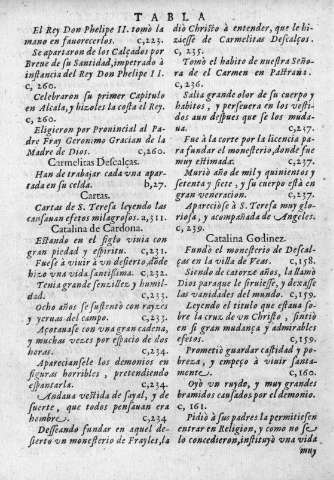 TABLA
El Rey Don Phelipe II. tomò la
mano en fauorecerlos. c,223.
Se apartaron de los Calçados por
Breue de su Santidad, impetrado à
instancia del Rey Don Phelipe II.
c, 260.
Celebraron su primer Capitulo
en Alcala, y hizoles la costa el Rey.
c, 260.
Eligieron por Prouincial al Pa-
dre Fray Geronimo Gracian de la
Madre de Dios. c,260.
Carmelitas Descalças.
Han de trabajar cada vna apar-
tada en su celda. b,27.
Cartas.
Cartas de S. Teresa leyendo las
causauan efetos milagrosos. a,311.
Catalina de Cardona.
Estando en el siglo viuia con
gran piedad y espiritu. c,231.
Fuese à viuir à vn desierto, dõde
hizo vna vida santissima. c,232.
Tenia grande senzillez y humil-
dad. c,233.
Ocho años se sustentò con rayzes
y yeruas del campo. c,233.
Açotauase con vna gran cadena,
y muchas vezes por espacio de dos
horas. c,234.
Apareciansele los demonios en
figuras horribles, pretendiendo
espantarla. c,234.
Andaua vestida de sayal, y de
suerte, que todos pensauan era
hombre. c,234
Desseando fundar en aquel de-
sierto vn monesterio de Frayles, la
diò Christo à entender, que le hi-
ziesse de Carmelitas Descalços.
c, 235.
Tomò el habito de nuestra Seño-
ra de el Carmen en Pastrana.
c, 236.
Salia grande olor de su cuerpo y
habitos, y perseuera en los vesti-
dos aun despues que se los muda-
ua. c,237.
Fue à la corte por la licencia pa-
ra fundar el monesterio, donde fue
muy estimada. c,237.
Muriò año de mil y quinientos y
setenta y siete, y su cuerpo està en
gran veneracion. c,237.
Apareciòse à S. Teresa muy glo-
riosa, y acompañada de Angeles.
c, 239.
Catalina Godinez.
Fundò el monesterio de Descal-
ças en la villa de Veas. c,158.
Siendo de catorze años, la llamò
Dios paraque le siruiesse, y dexasse
las vanidades del mundo. c,159.
Leyendo el titulo que estaua so-
bre la cruz de vn Christo, sintiò
en si gran mudança y admirables
efetos. c,159.
Prometiò guardar castidad y po-
breza, y empeço à viuir santa-
mente. c,160.
Oyò vn ruydo, y muy grandes
bramidos causados por el demonio.
c, 161.
Pidiò à sus padres la permitiessen
entrar en Religion, y como no se
lo concedieron, instituyò vna vida
muy